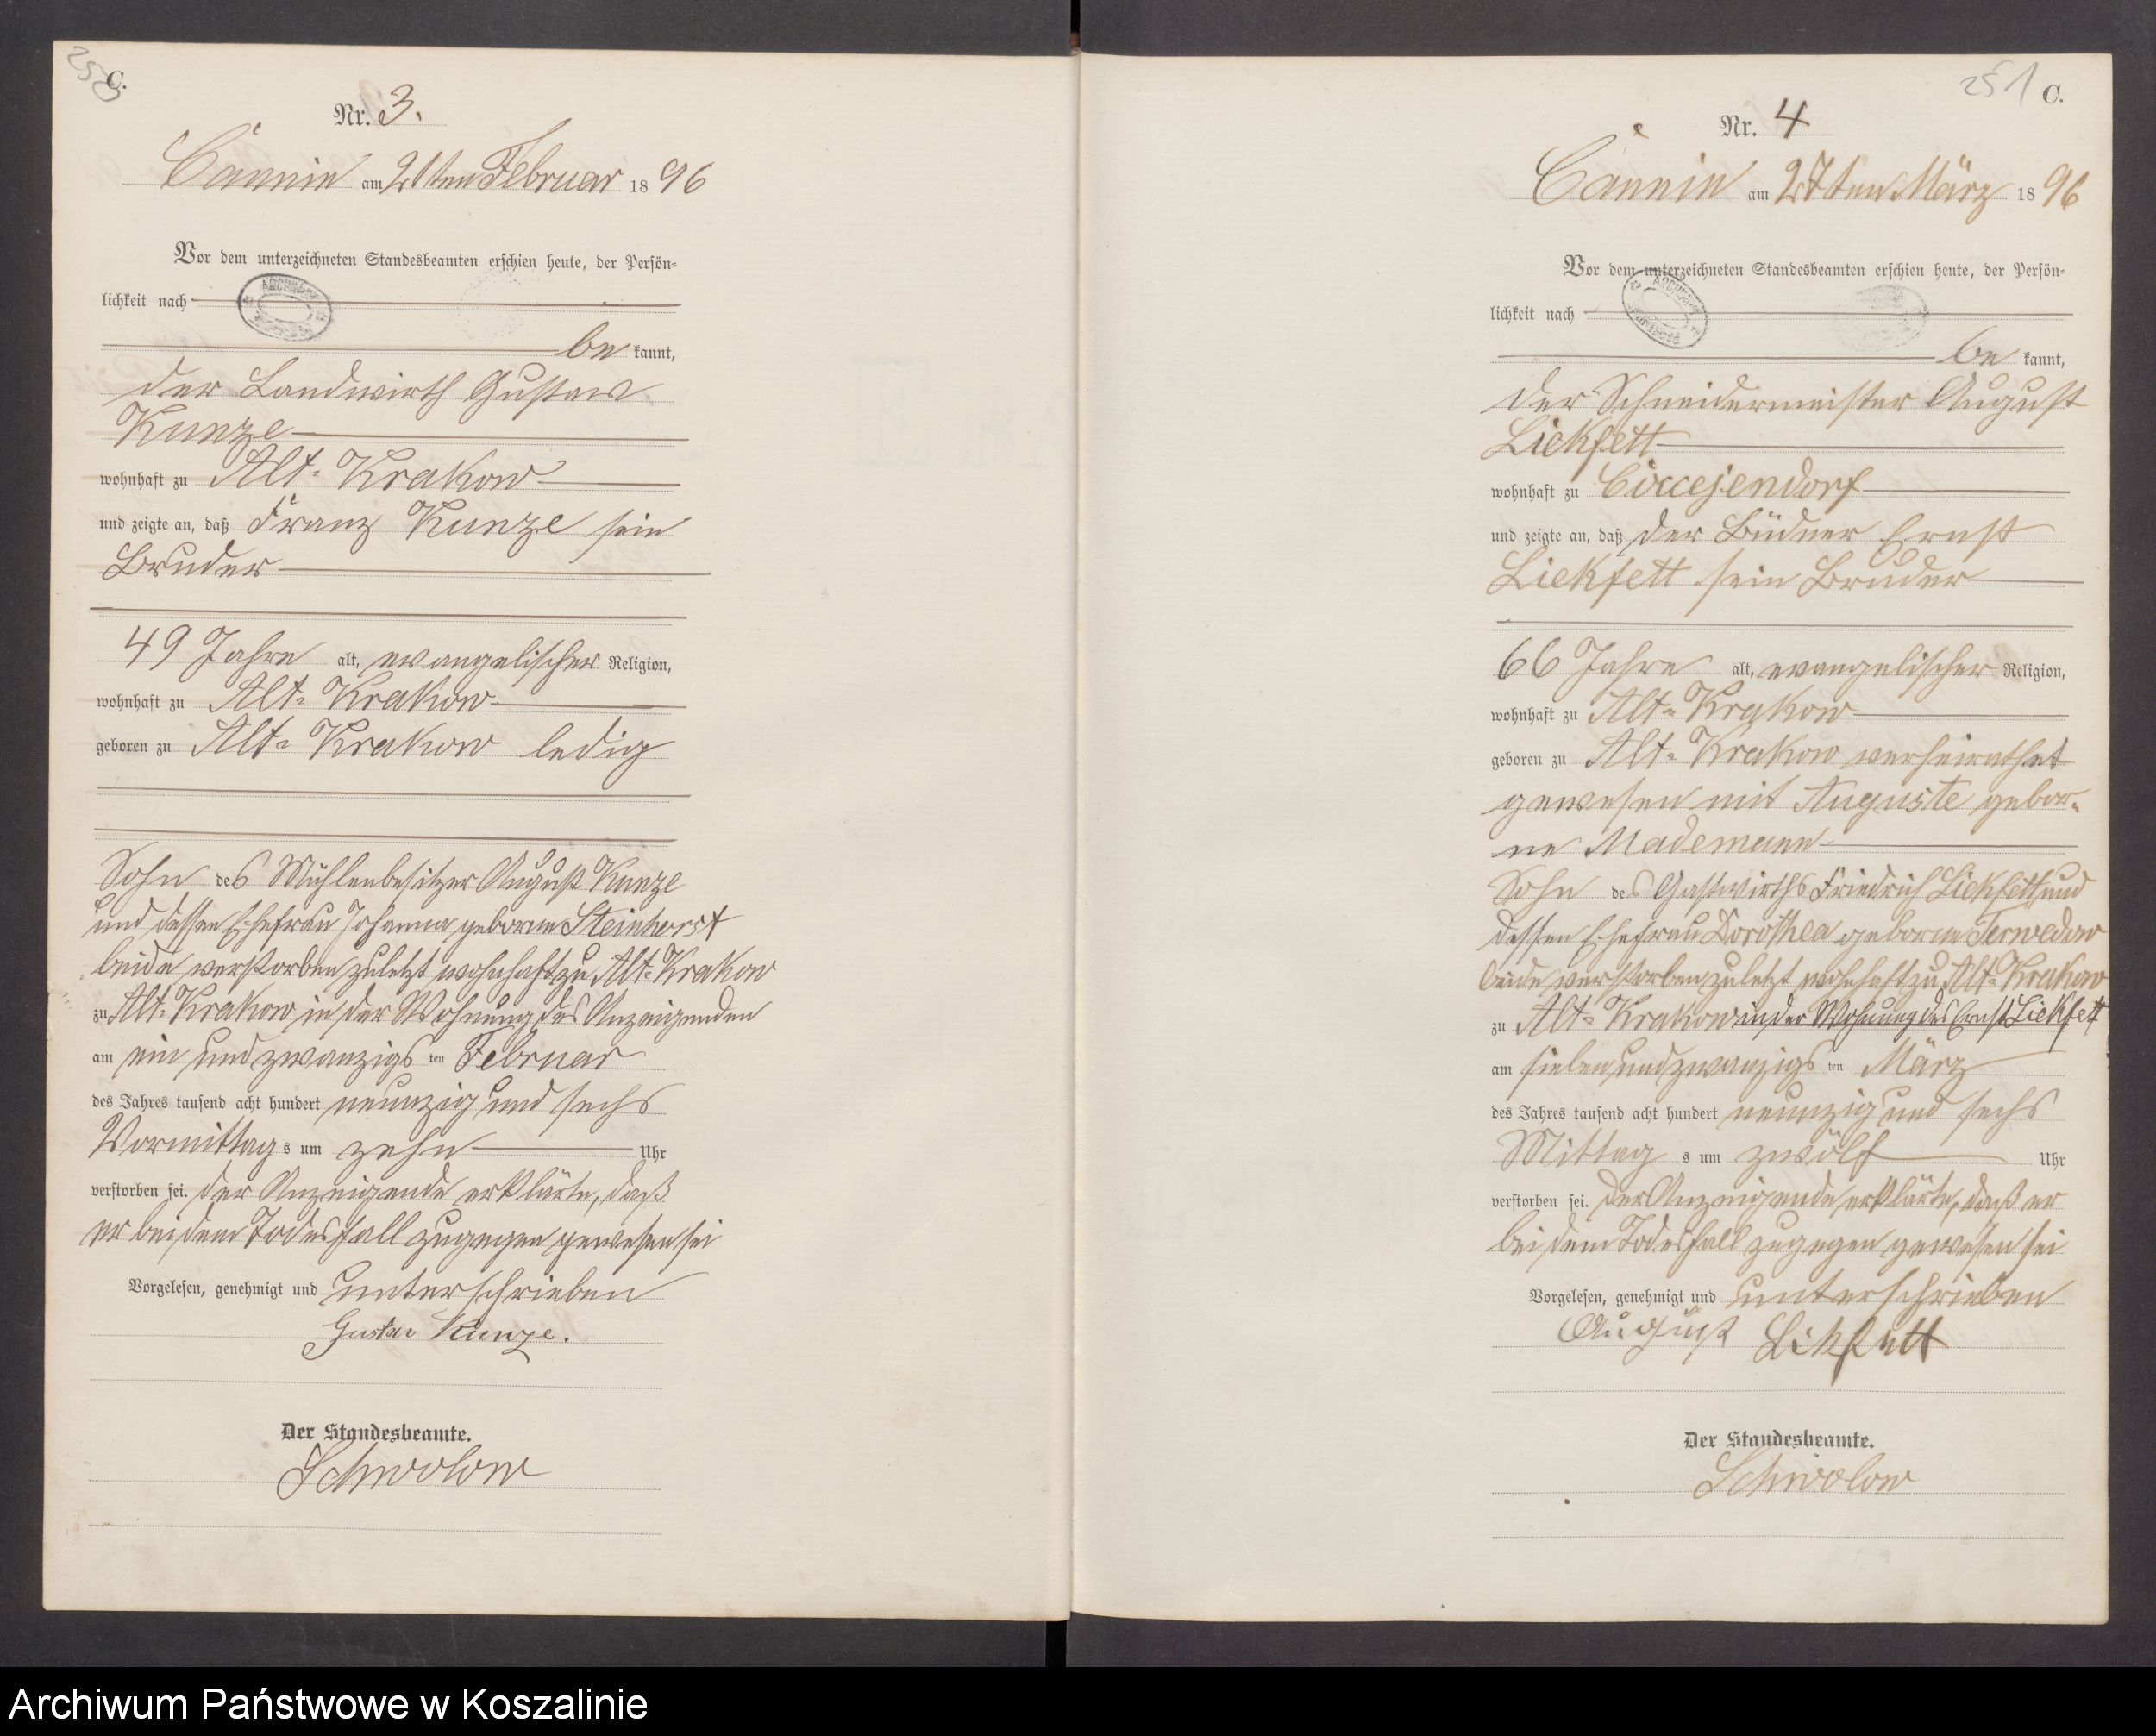 250
C.
Nr. 3.
Cannin am 21ten Februar 1896
Vor dem unterzeichneten Standesbeamten erschien heute, der Persön-
lichkeit nach
bekannt,
der Landwirth Gustav
Kunze
wohnhaft zu Alt-Krakow
und zeigte an, daß Franz Kunze sein
Bruder
49 Jahre alt, evangelischer Religion,
wohnhaft zu Alt-Krakow
geboren zu Alt-Krakow ledig
Sohn des Mühlenbesitzer August Kunze
und dessen Ehefrau Johanna geborne Steinhorst
beide verstorben zuletzt wohnhaft zu Alt-Krakow
zu Alt-Krakow in der Wohnung des Anzeigenden
am ein und zwanzigsten Februar
des Jahres tausend acht hundert neunzig und sechs
Vormittags um zehn Uhr
verstorben sei. Der Anzeigende erklärte, daß
er bei dem Todesfall zugegen gewesen sei
Vorgelesen, genehmigt und unterschrieben
Gustav Kunze.
Der Standesbeamte.
Schwolow
251 C.
Nr. 4
Cannin am 27ten März 1896
Vor dem unterzeichneten Standesbeamten erschien heute, der Persön-
lichkeit nach
bekannt,
der Schneidermeister August
Liekfett
wohnhaft zu Coccejendorf
und zeigte an, daß der Büdner Ernst
Liekfett sein Bruder
66 Jahre alt, evangelischer Religion,
wohnhaft zu Alt-Krakow
geboren zu Alt-Krakow verheirathet
gewesen mit Auguste gebor-
ne Mademann
Sohn des Gastwirths Friedrich Liekfett und
dessen Ehefrau Dorothea geborne Terwedow
beide verstorben zuletzt wohnhaft zu Alt-Krakow
zu Alt-Krakow in der Wohnung des Ernst Liekfett
am sieben und zwanzigsten März
des Jahres tausend acht hundert neunzig und sechs
Mittags um zwölf Uhr
verstorben sei. Der Anzeigende erklärte, daß er
bei dem Todesfall zugegen gewesen sei
Vorgelesen, genehmigt und unterschrieben
August Likfett
Der Standesbeamte.
Schwolow
Archiwum Państwowe w Koszalinie